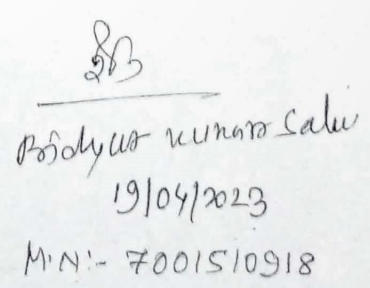 Bidyut Kumar Sahu
19/04/2023
M.N:- 7001510918